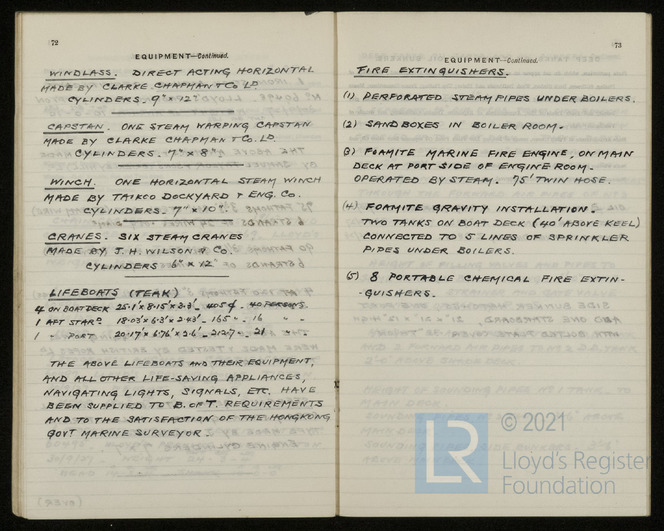 72
EQUIPMENT—Continued.
WINDLASS. DIRECT ACTING HORIZONTAL
MADE BY CLARKE. CHAPMAN & CO. LD.
CYLINDERS. 9" × 12"
CAPSTAN. ONE STEAM WARPING CAPSTAN
MADE BY CLARKE CHAPMAN & CO. LD.
CYLINDERS. 7" × 8"
WINCH. ONE HORIZONTAL STEAM WINCH
MADE BY TAIKOO DOCKYARD & ENG. CO.
CYLINDERS. 7" × 10"
CRANES. SIX STEAM CRANES
MADE BY J. H. WILSON & CO.
CYLINDERS 6" × 12"
LIFEBOATS (TEAK)
4 ON BOAT DECK 25.1' × 8.15' × 3.3' 405 . 40 PERSONS.
1 AFT STARD. 18.03' × 6.3' × 2.43' . 165 . 16 "
1 " PORT 20.17' × 6.76' × 2.6' . 212.7 . 21 " .
THE ABOVE LIFEBOATS AND THEIR EQUIPMENT,
AND ALL OTHER LIFE-SAVING APPLIANCES,
NAVIGATING LIGHTS, SIGNALS, ETC. HAVE
BEEN SUPPLIED TO B. OF T. REQUIREMENTS
AND TO THE SATISFACTION OF THE HONGKONG
GOVT MARINE SURVEYOR.
73
EQUIPMENT—Continued.
FIRE EXTINGUISHERS.
(1) PERFORATED STEAM PIPES UNDER BOILERS.
(2) SAND BOXES IN BOILER ROOM.
(3) FOAMITE MARINE FIRE ENGINE, ON MAIN
DECK AT PORT SIDE OF ENGINE ROOM.
OPERATED BY STEAM. 75' TWIN HOSE.
(4) FOAMITE GRAVITY INSTALLATION.
TWO TANKS ON BOAT DECK (40' ABOVE KEEL)
CONNECTED TO 5 LINES OF SPRINKLER
PIPES UNDER BOILERS.
(5) 8 PORTABLE CHEMICAL FIRE EXTIN-
-GUISHERS.
LR © 2021
Lloyd's Register
Foundation